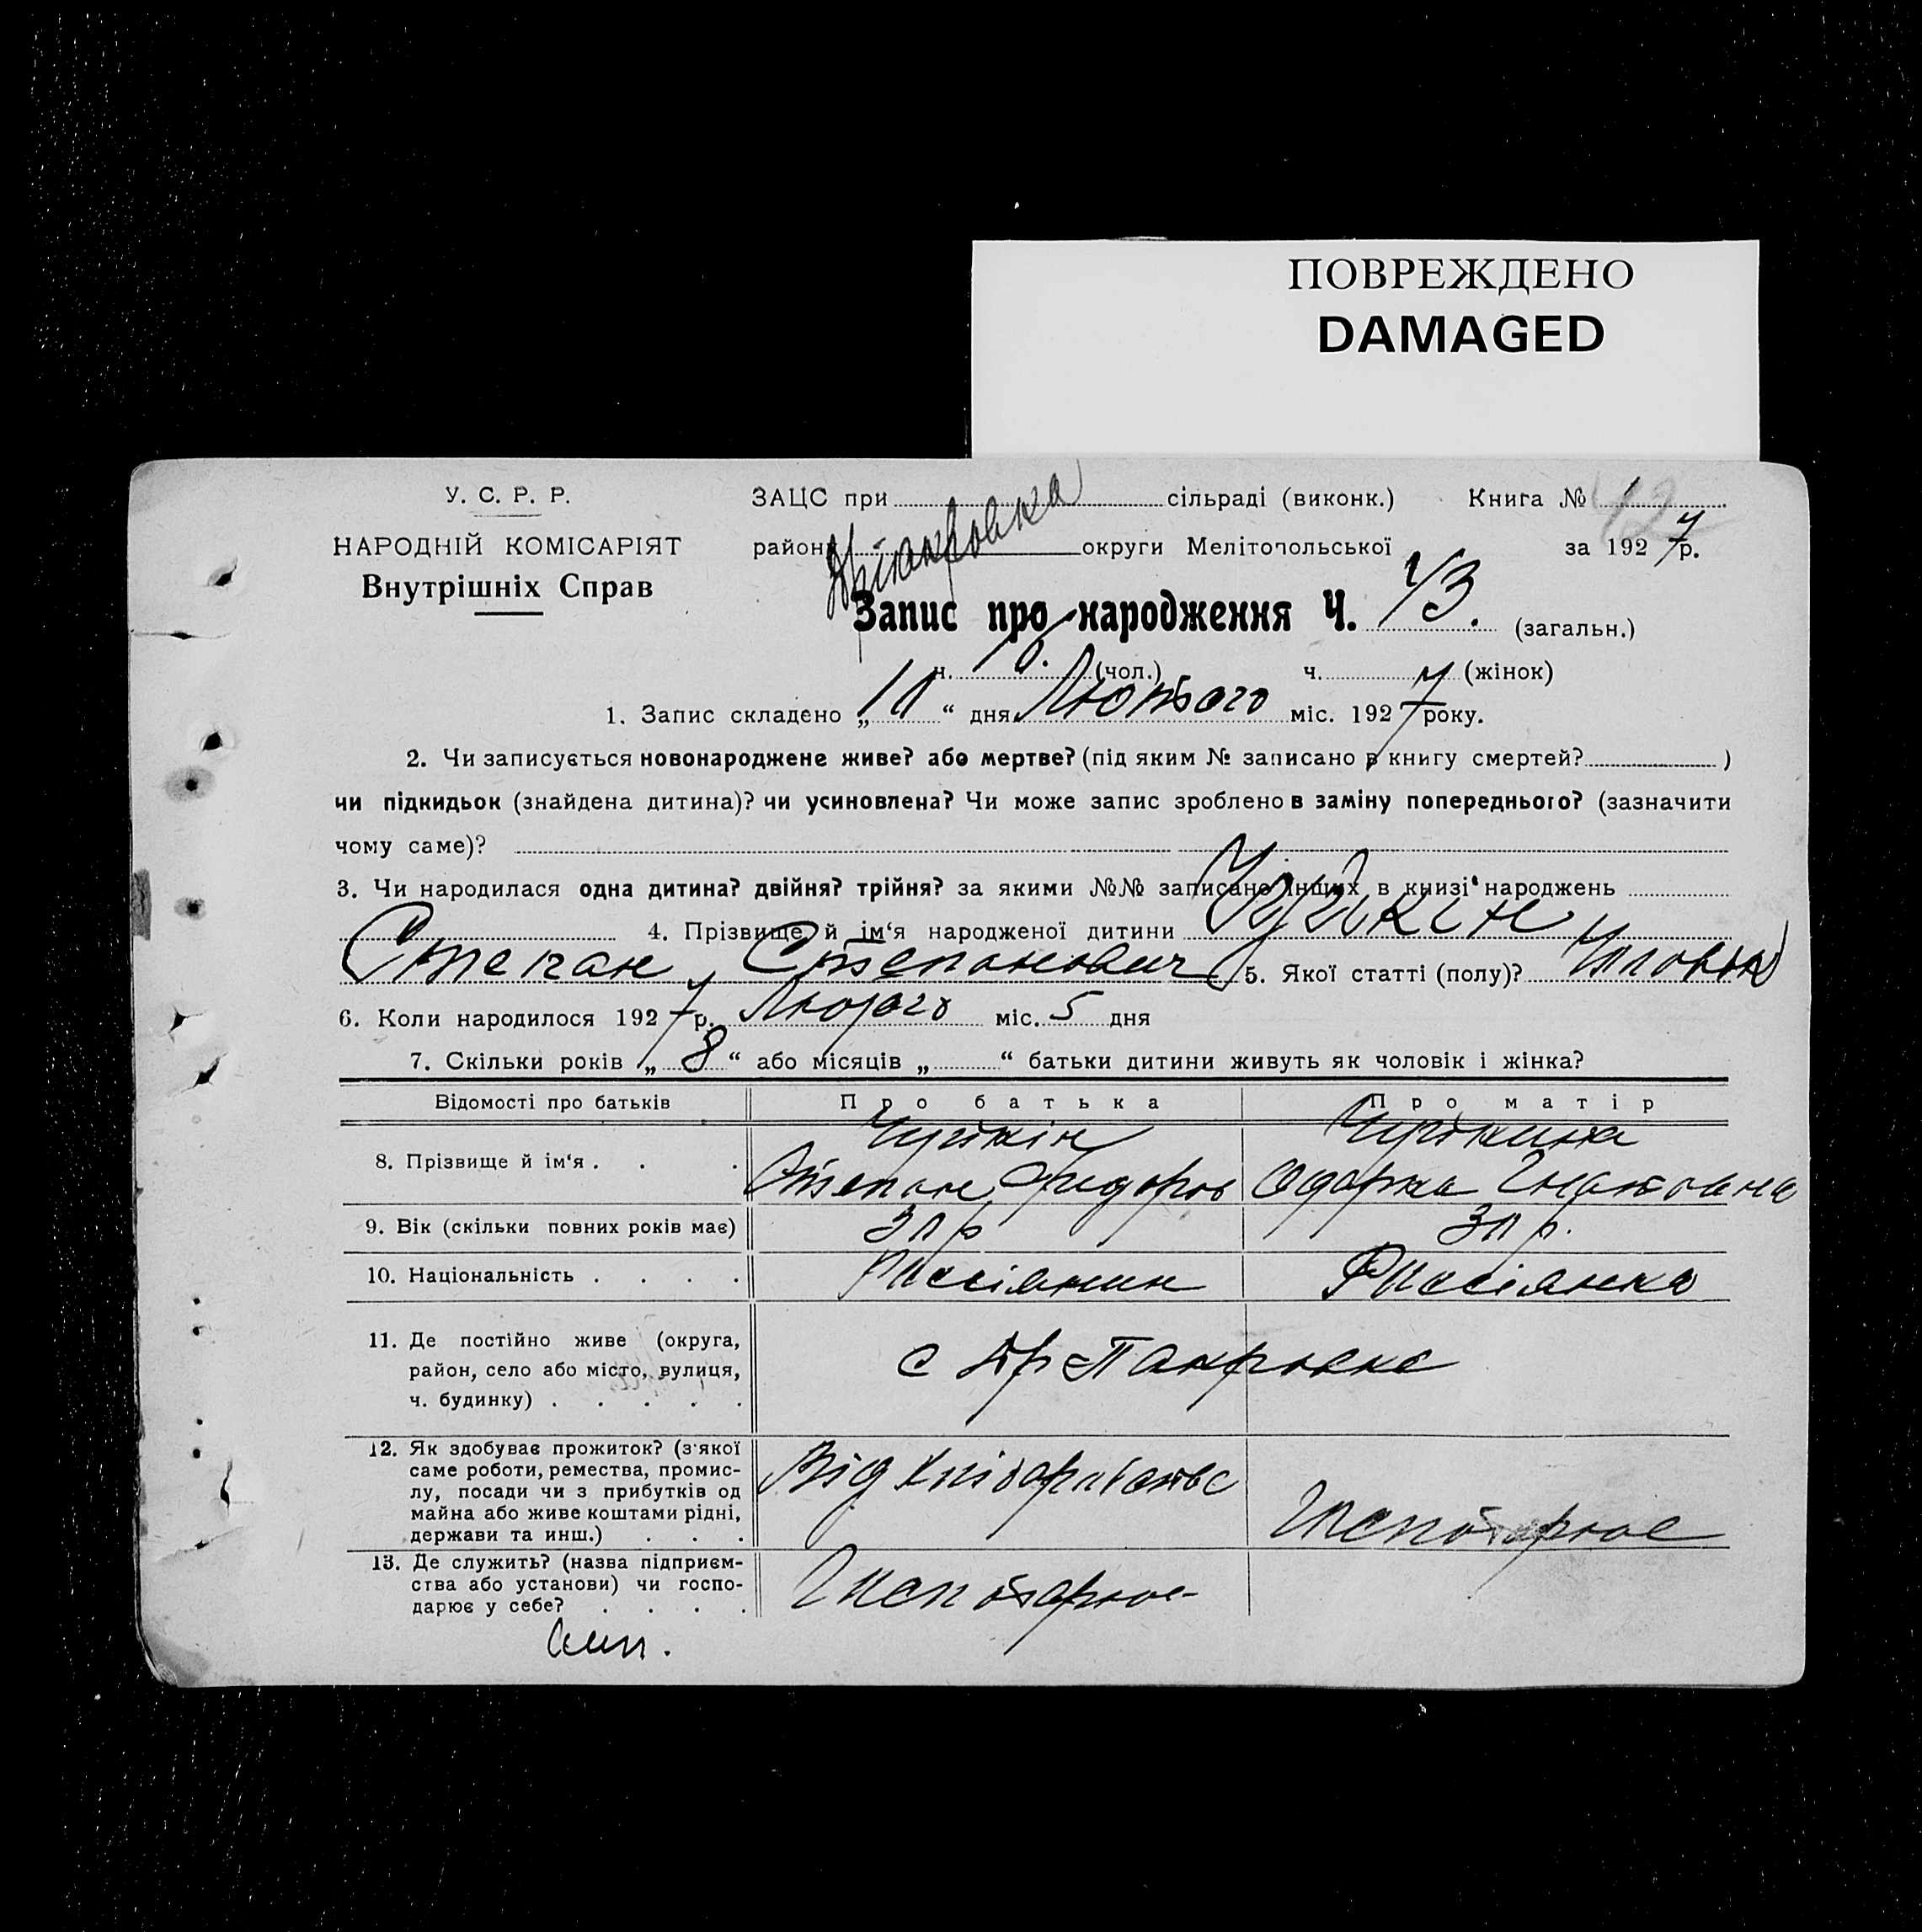 ПОВРЕЖДЕНО
DAMAGED
У. С. Р. Р.
НАРОДНІЙ КОМІСАРІЯТ
Внутрішніх Справ
ЗАЦС при сільраді (виконк.) Книга № 1
району округи Мелітопольської за 1927 р.
Запис про народження Ч. 13. (загальн.)
ч. (чол.) ч. 7 (жінок)
1. Запис складено „10“ дня Лютого міс. 1927 року.
2. Чи записується новонароджене живе? або мертве? (під яким № записано в книгу смертей? )
чи підкидьок (знайдена дитина)? чи усиновлена? Чи може запис зроблено в заміну попереднього? (зазначити
чому саме)?
3. Чи народилася одна дитина? двійня? трійня? за якими №№ записано інших в книзі народжень
4. Прізвище й ім‘я народженої дитини
Степан Степанович 5. Якої статті (полу)?
6. Коли народилося 1927 р. Лютого міс. 5 дня
7. Скільки років „8“ або місяців „ “ батьки дитини живуть як чоловік і жінка?
Відомості про батьків Про батька Про матір
8. Прізвище й ім‘я . . .
Степан Федоров Одарка Гнатовна
9. Вік (скільки повних років має) 30 р 30 р.
10. Національність . . . . Россіянин Россіянка
11. Де постійно живе (округа,
район, село або місто, вулиця,
ч. будинку) . . . . .
с
12. Як здобуває прожиток? (з‘якої
саме роботи, ремества, промис-
лу, посади чи з прибутків од
майна або живе коштами рідні,
держави та инш.) . . .
Від хліборобства
13. Де служить? (назва підприєм-
ства або установи) чи госпо-
дарює у себе? . . . .